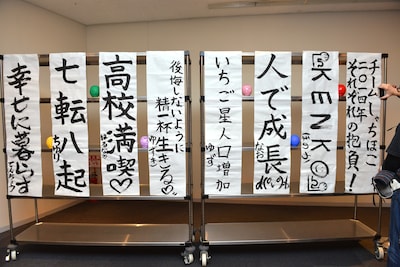 チームしゃちほこ
二〇一四年
それぞれの抱負!
KENKO
人で成長
なお
いちご星人口増加
ゆず
後悔しないように
精一杯生きる
高校満喫♡
七転八起
幸せに暮らす